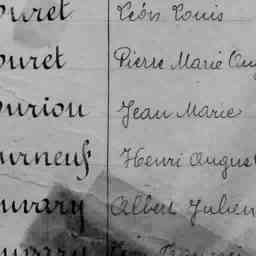 ouret Léon Louis
ouret Pierre Marie Aug
ouriou Jean Marie
ourneuf Henri August
ouvray Albert Julien
ouvray